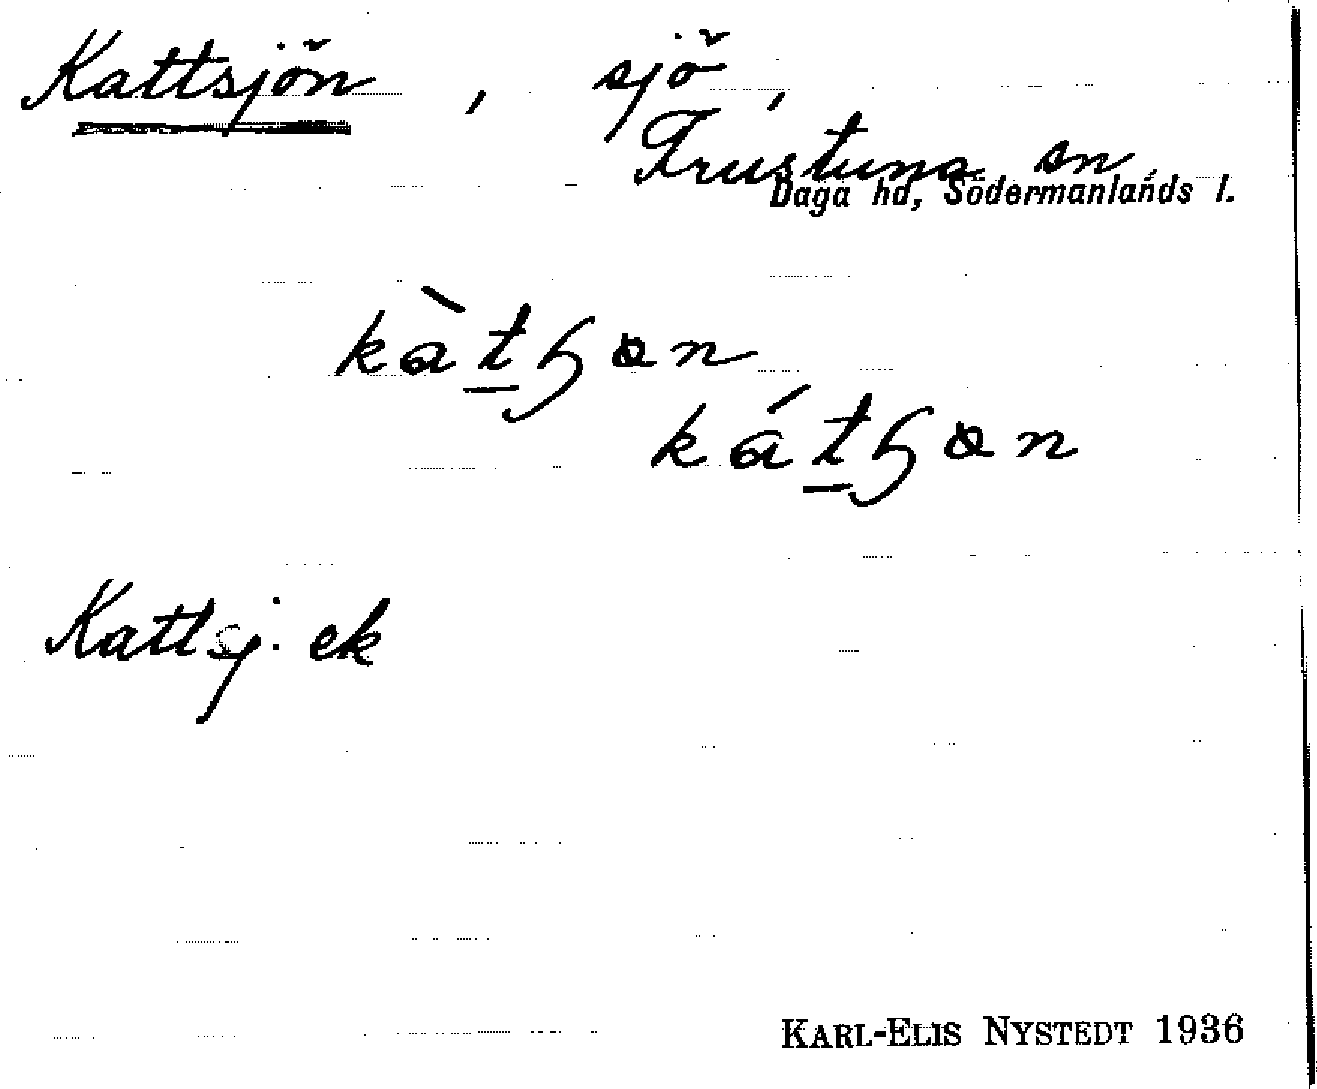 Kattsjön, sjö,
Frustuna sn
Daga hd, Södermanlands l.
kàtꞕøn
kátꞕøn
Kattsj. ek
KARL-ELIS NYSTEDT 1936